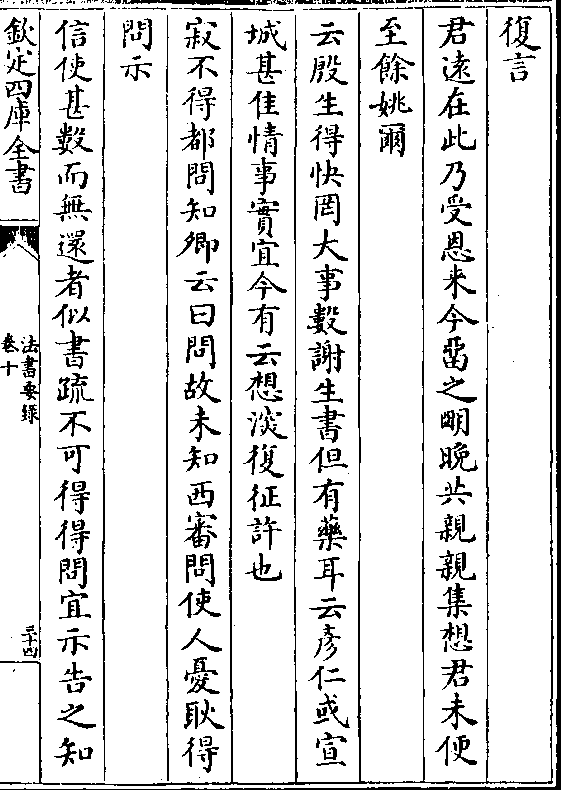 復言
君遠在此乃受恩来今畱之明晚共親親集想君未便
至餘姚爾
云殷生得快罔大事數謝生書但有藥耳云彥仁或宣
城甚佳情事實宜今有云想淡復征許也
寂不得都問知卿云曰問故未知西審問使人憂耿得
問示
信使甚數而無還者似書疏不可得得問宜示告之知
欽定四庫全書
法書要錄
卷十
三十四